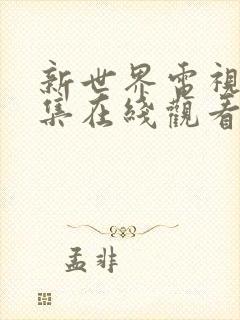 新世界電視
集在綫觀看
孟非